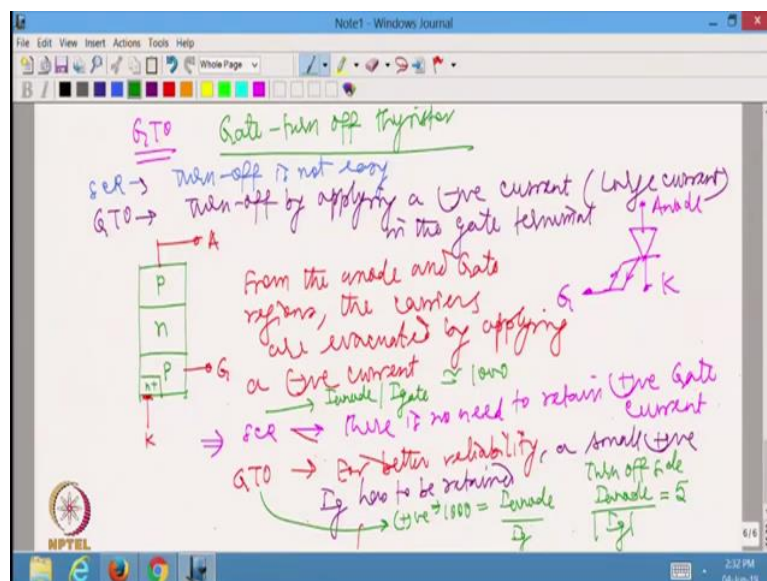 Note1 - Windows Journal
File Edit View Insert Actions Tools Help
Whole Page
B I
GTO Gate-turn off thyristor
SCR → Turn-off is not easy
GTO → Turn-off by applying a (-)ve current (Large current)
in the gate terminal
Anode
G
K
A
P
n
P
n+
G
K
From the anode and Gate
regions, the carriers
are evacuated by applying
a (-)ve current
→ Ianode / Igate ≃ 1000
⇒ SCR ⇔ There is no need to retain (+)ve Gate
current
GTO → For better reliability, a small (+)ve
Ig has to be retained
(+)ve → 1000 = Ianode / Ig
Turn off side
Ianode / |Ig| = 5
NPTEL
6/6
2:32 PM